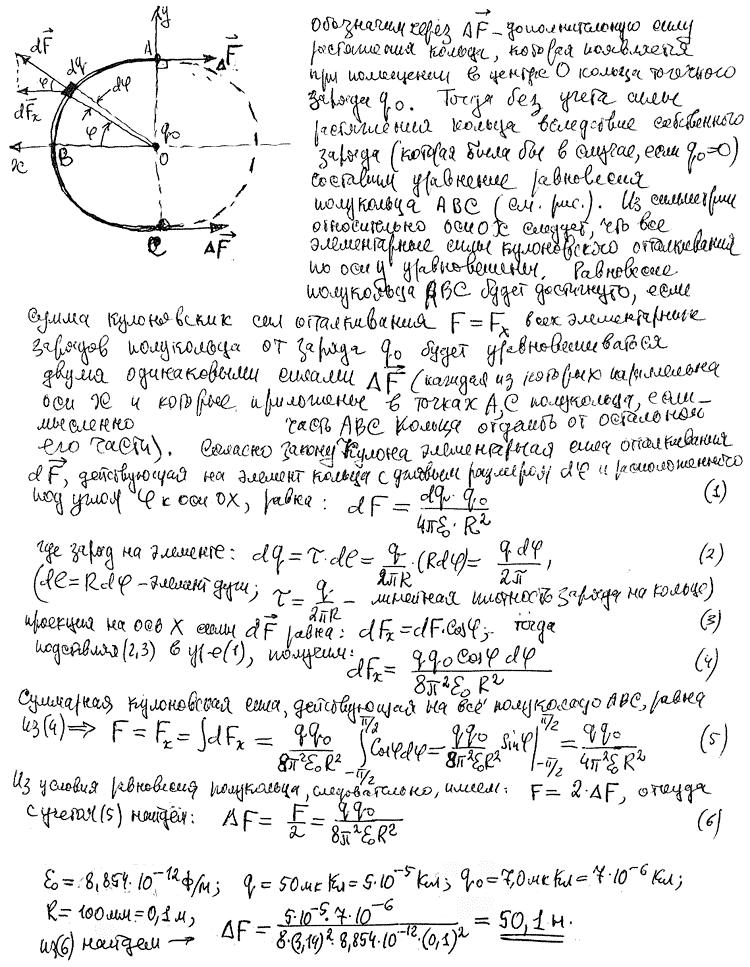 y
dF⃗
dq
A
ΔF⃗
φ
dφ
dFₓ
φ
q₀
x
B
O
C
ΔF⃗
Обозначим через ΔF⃗ – дополнительную силу
растяжения кольца, которая появляется
при помещении в центре O кольца точечного
заряда q₀. Тогда без учета силы
растяжения кольца вследствие собственного
заряда (которая была бы в случае, если q₀=0)
составим уравнение равновесия
полукольца ABC (см. рис.). Из симметрии
относительно оси OX следует, что все
элементарные силы кулоновского отталкивания
по оси y уравновешены. Равновесие
полукольца ABC будет достигнуто, если
сумма кулоновских сил отталкивания F = Fₓ всех элементарных
зарядов полукольца от заряда q₀ будет уравновешиваться
двумя одинаковыми силами ΔF⃗ (каждая из которых параллельна
оси X и которые приложены в точках A, C полукольца, если
мысленно часть ABC кольца отделить от остальной
его части). Согласно закону Кулона элементарная сила отталкивания
dF⃗, действующая на элемент кольца с угловым размером dφ и расположенного
под углом φ к оси OX, равна: dF = dq·q₀ / 4πε₀·R² (1)
где заряд на элементе: dq = τ·dℓ = q/2πR ·(Rdφ) = q dφ/2π, (2)
(dℓ = Rdφ – элемент дуги; τ = q/2πR – линейная плотность заряда на кольце)
проекция на ось X силы dF⃗ равна: dFₓ = dF·Cosφ; тогда (3)
подставляя (2,3) в ур-е (1), получим: dFₓ = qq₀ Cosφ dφ / 8π²ε₀R² (4)
Суммарная кулоновская сила, действующая на всё полукольцо ABC, равна
из (4) ⇒ F = Fₓ = ∫dFₓ = qq₀/8π²ε₀R² ∫_{-π/2}^{π/2} Cosφdφ = qq₀/8π²ε₀R² Sinφ|_{-π/2}^{π/2} = qq₀/4π²ε₀R² (5)
Из условия равновесия полукольца, следовательно, имеем: F = 2·ΔF, откуда
с учетом (5) найдем: ΔF = F/2 = qq₀/8π²ε₀R² (6)
ε₀ = 8,854·10⁻¹² Ф/м; q = 50 мкКл = 5·10⁻⁵ Кл; q₀ = 7,0 мкКл = 7·10⁻⁶ Кл;
R = 100 мм = 0,1 м,
из (6) найдем → ΔF = 5·10⁻⁵·7·10⁻⁶ / 8·(3,14)²·8,854·10⁻¹²·(0,1)² = 50,1 н.